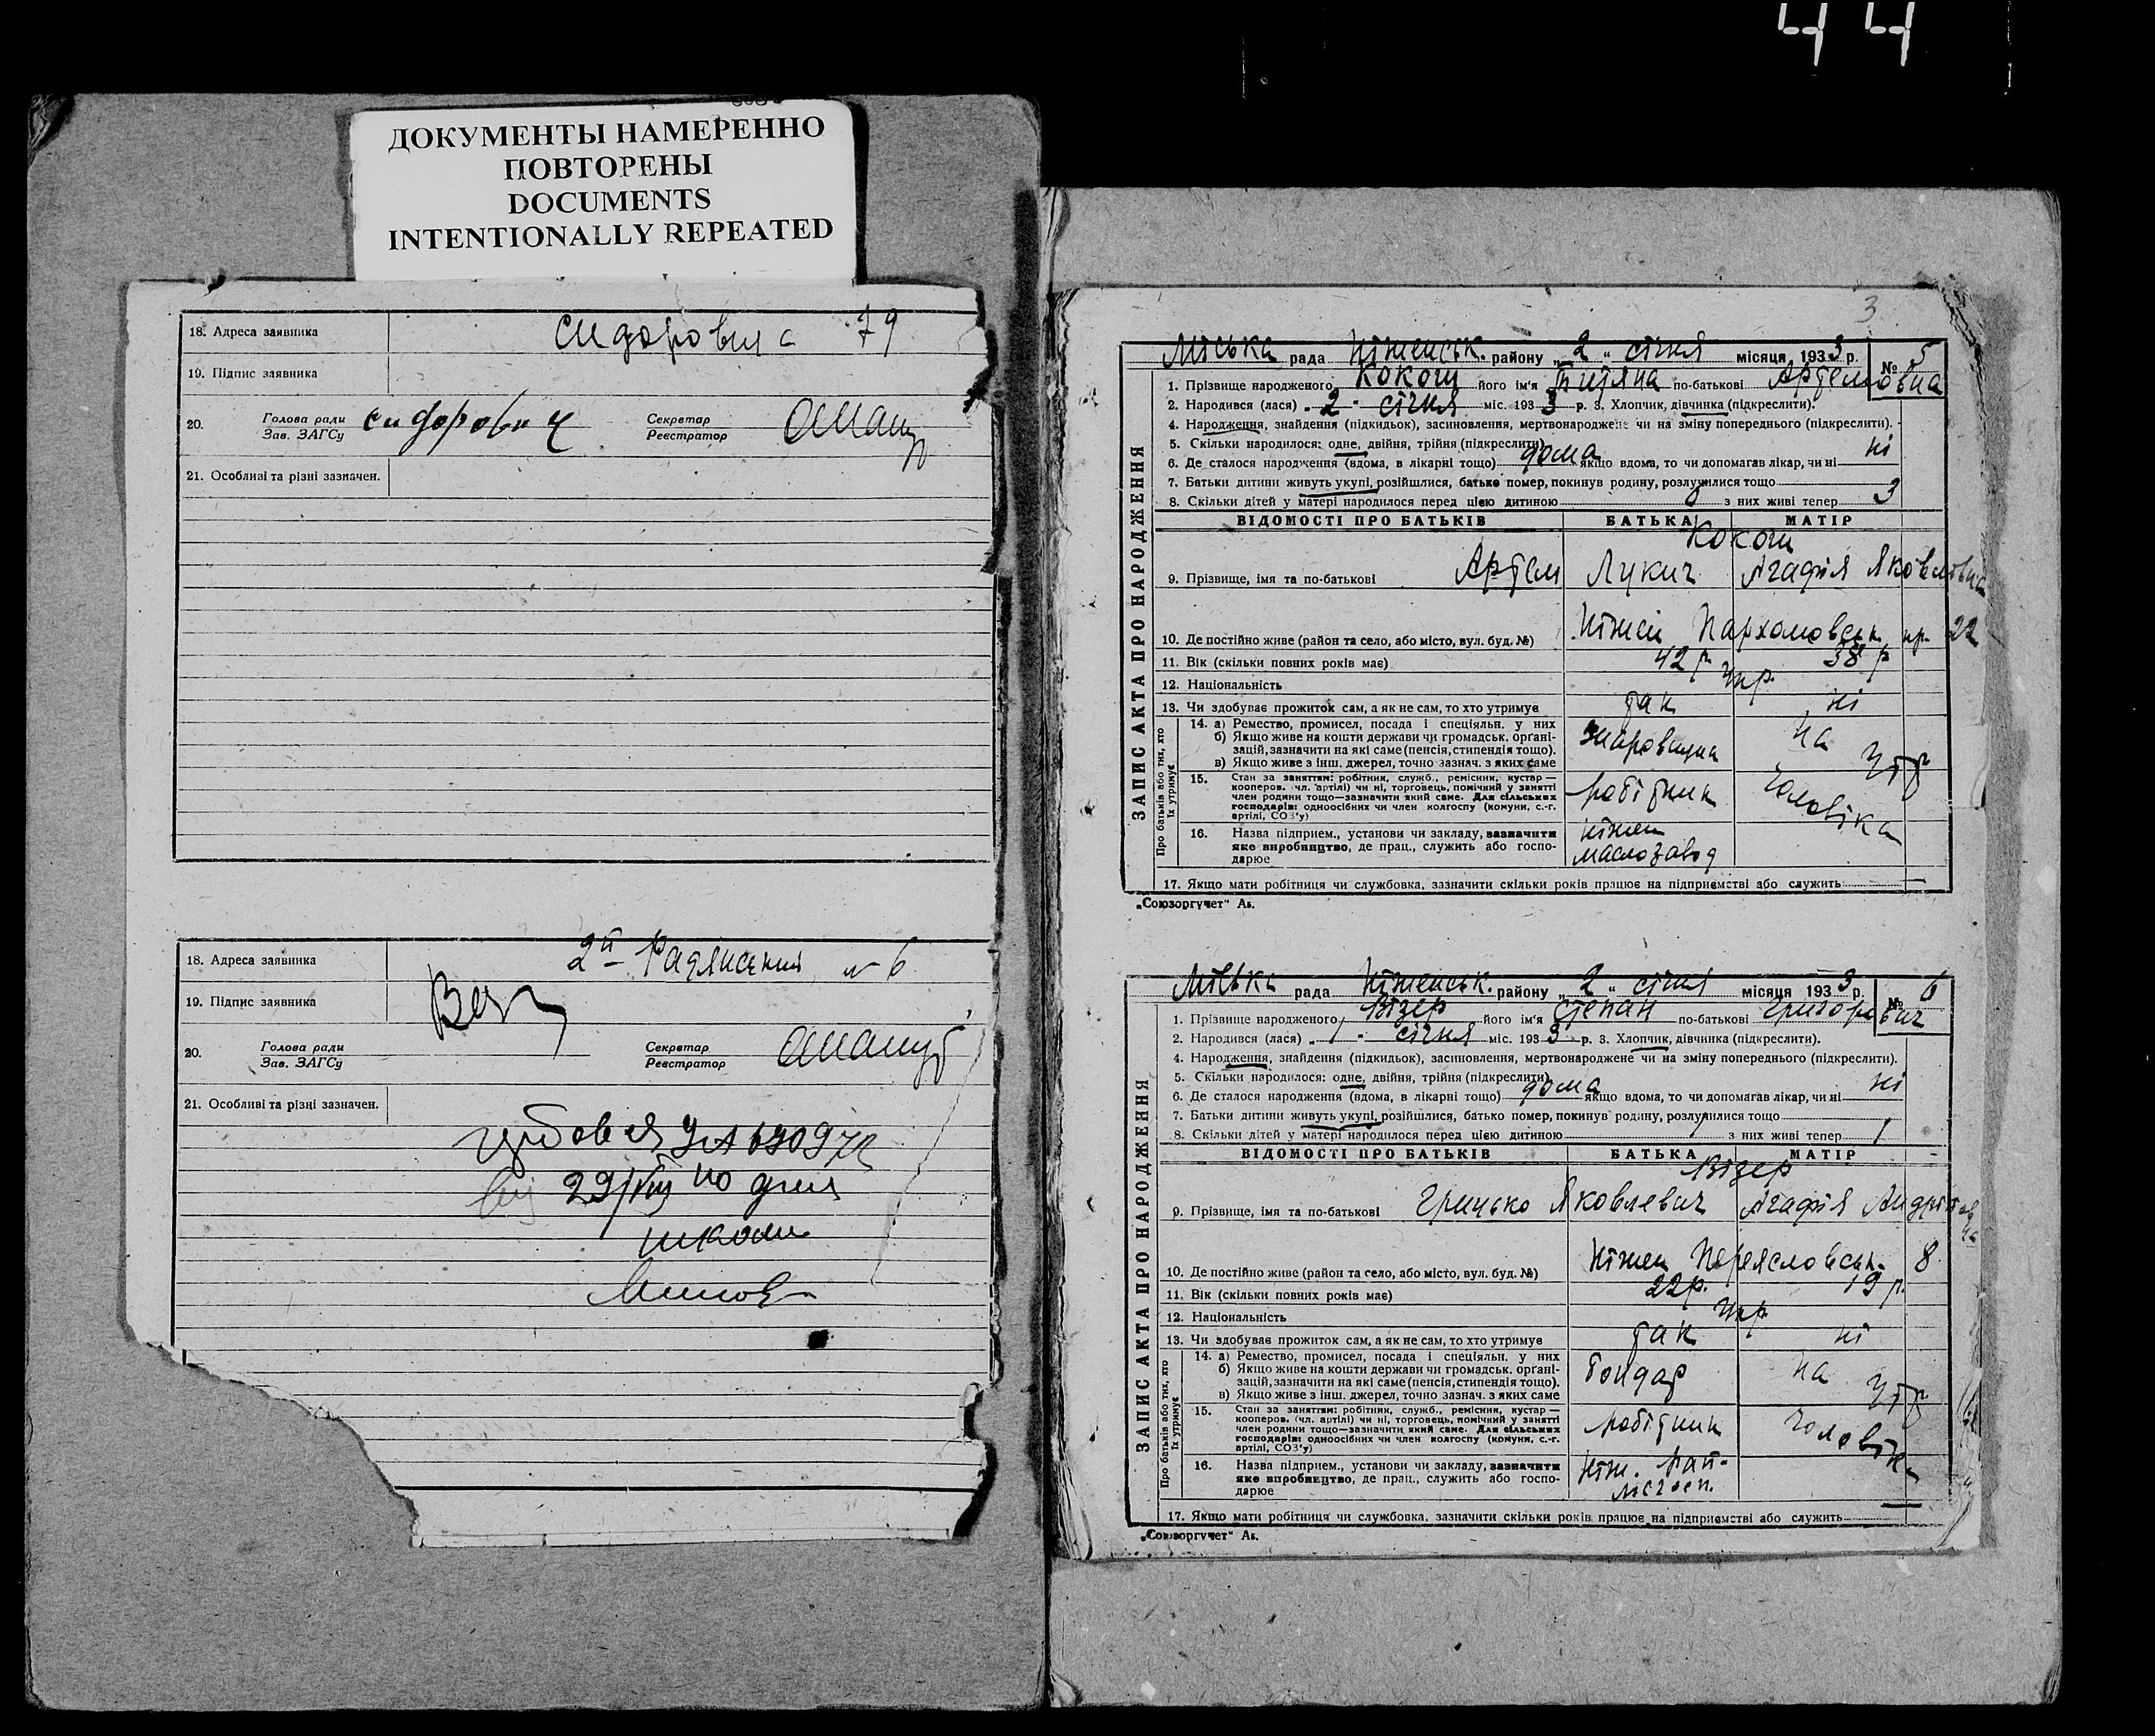 44
ДОКУМЕНТЫ НАМЕРЕННО
ПОВТОРЕНЫ
DOCUMENTS
INTENTIONALLY REPEATED
18. Адреса заявника 79
19. Підпис заявника
20. Голова ради Зав. ЗАГСу Сидорович Секретар Реєстратор
21. Особливі та різні зазначен.
18. Адреса заявника № 6
19. Підпис заявника
20. Голова ради Зав. ЗАГСу Секретар Реєстратор
21. Особливі та різні зазначен.
29/VIII дня
школи
3
ЗАПИС АКТА ПРО НАРОДЖЕННЯ
Міська рада Ніженськ. району „2“ січня місяця 1933 р. № 5
1. Прізвище народженого Кокош його ім'я Тит'яна по-батькові Артемовна
2. Народився (лася) „2“ січня міс. 1933 р. 3. Хлопчик, дівчинка (підкреслити).
4. Народження, знайдення (підкидьок), засиновлення, мертвонароджене чи на зміну попереднього (підкреслити).
5. Скільки народилося: одне, двійня, трійня (підкреслити)
6. Де сталося народження (вдома, в лікарні тощо) дома якщо вдома, то чи допомагав лікар, чи ні ні
7. Батьки дитини живуть укупі, розійшлися, батько помер, покинув родину, розлучилися тощо
8. Скільки дітей у матері народилося перед цією дитиною з них живі тепер 3
ВІДОМОСТІ ПРО БАТЬКІВ БАТЬКА МАТІР
Кокош
9. Прізвище, імя та по-батькові Артем Лукич Агафія Яковлевна
10. Де постійно живе (район та село, або місто, вул. буд. №) Ніжен Пархомовськ. пр. 22
11. Вік (скільки повних років має) 42 р. 38 р
12. Національність Укр.
13. Чи здобуває прожиток сам, а як не сам, то хто утримує так ні
Про батьків або тих, хто їх утримує
14. а) Ремество, промисел, посада і спеціяльн. у них
б) Якщо живе на кошти держави чи громадськ. органі-
зацій, зазначити на які саме (пенсія, стипендія тощо).
в) Якщо живе з інш. джерел, точно зазнач. з яких саме
на утр
15. Стан за заняттям: робітник, служб., ремісник, кустар —
кооперов. (чл. артілі) чи ні, торговець, помічний у занятті
член родини тощо—зазначити який саме. Для сільських
господарів: одноосібних чи член колгоспу (комуни, с.-г.
артілі, СОЗ'у)
робітник чоловіка
16. Назва підприєм., установи чи закладу, зазначити
яке виробництво, де прац., служить або госпо-
дарює
Ніжен маслозавод
17. Якщо мати робітниця чи службовка, зазначити скільки років працює на підприємстві або служить —
„Союзоргучет“ Аб.
ЗАПИС АКТА ПРО НАРОДЖЕННЯ
Міська рада Ніженськ. району „2“ січня місяця 1933 р. № 6
1. Прізвище народженого Візер його ім'я Степан по-батькові Григорович
2. Народився (лася) „1“ січня міс. 1933 р. 3. Хлопчик, дівчинка (підкреслити).
4. Народження, знайдення (підкидьок), засиновлення, мертвонароджене чи на зміну попереднього (підкреслити).
5. Скільки народилося: одне, двійня, трійня (підкреслити)
6. Де сталося народження (вдома, в лікарні тощо) дома якщо вдома, то чи допомагав лікар, чи ні ні
7. Батьки дитини живуть укупі, розійшлися, батько помер, покинув родину, розлучилися тощо
8. Скільки дітей у матері народилося перед цією дитиною 1 з них живі тепер 1
ВІДОМОСТІ ПРО БАТЬКІВ БАТЬКА МАТІР
Візер
9. Прізвище, імя та по-батькові Грицько Яковлевич Агафія Андріївна
10. Де постійно живе (район та село, або місто, вул. буд. №) Ніжен Переясловськ. 8
11. Вік (скільки повних років має) 22 р. 19 р.
12. Національність Укр.
13. Чи здобуває прожиток сам, а як не сам, то хто утримує так ні
Про батьків або тих, хто їх утримує
14. а) Ремество, промисел, посада і спеціяльн. у них
б) Якщо живе на кошти держави чи громадськ. органі-
зацій, зазначити на які саме (пенсія, стипендія тощо).
в) Якщо живе з інш. джерел, точно зазнач. з яких саме
бондар на утр
15. Стан за заняттям: робітник, служб., ремісник, кустар —
кооперов. (чл. артілі) чи ні, торговець, помічний у занятті
член родини тощо—зазначити який саме. Для сільських
господарів: одноосібних чи член колгоспу (комуни, с.-г.
артілі, СОЗ'у)
робітник чоловік
16. Назва підприєм., установи чи закладу, зазначити
яке виробництво, де прац., служить або госпо-
дарює
Ніж.
17. Якщо мати робітниця чи службовка, зазначити скільки років працює на підприємстві або служить —
„Союзоргучет“ Аб.